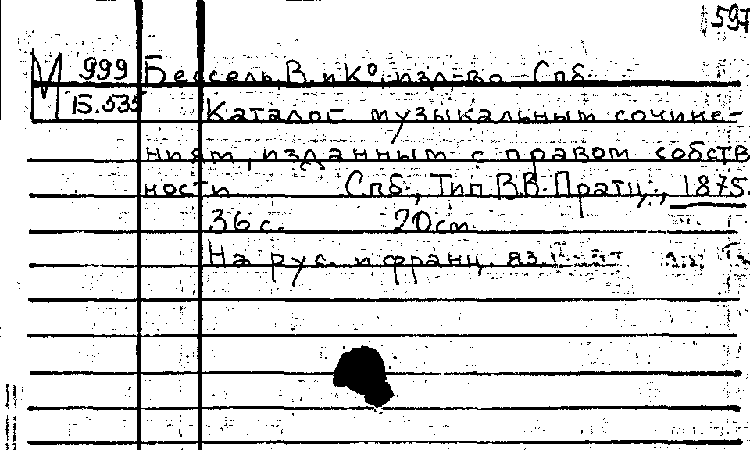 597
М 999 Бессель, В. и К°, изд-во Спб.
15.535 Каталог музыкальным сочине-
ниям, изданным с правом собств
ности Спб., Тип В.В. Пратц, 1875.
36 с. 20 см.
На рус. и франц. яз.